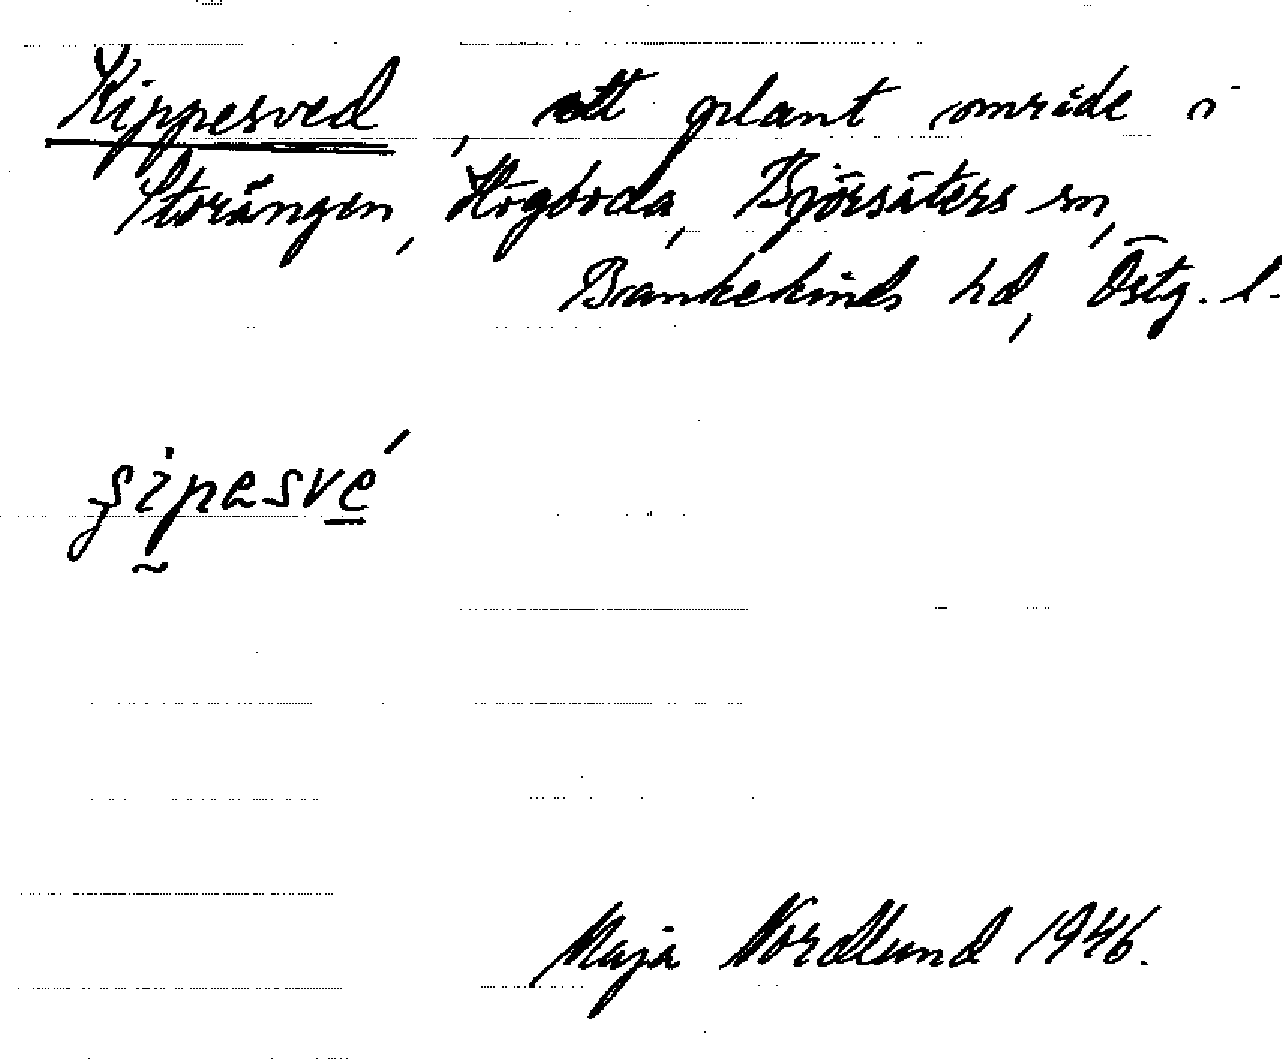 Kippesved, ett plant område i
Storängen, Högboda, Björsäters sn,
Bankekinds hd, Östg. l.
ʂipesvé
Maja Nordlund 1946.